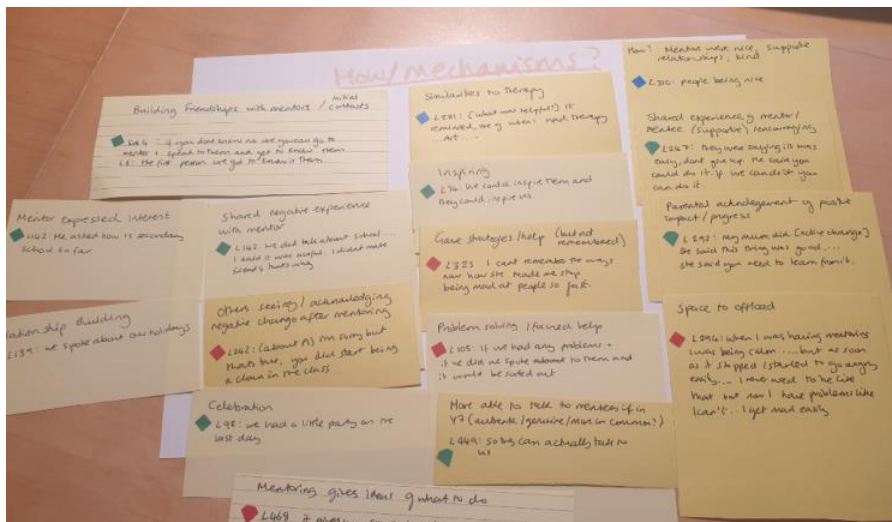 How/mechanisms?
Building friendships with mentors / makes contacts
: if you dont know no one you can go to
mentor + speak to them and get to know them
: the first person we got to know is them
Mentor expressed interest
L142: He asked how is secondary
school so far
Relationship Building
L139: we spoke about our holidays
Shared negative experience
with mentor
L142: we did talk about school...
I said it was awful. I didnt make
friends thats why
Others seeing / acknowledging
negative change after mentoring
L242: (about A) I'm sorry but
thats true, you did start being
a clown in the class
Celebration
L98: we had a little party on the
last day
Mentoring gives ideas of what to do
L468 it gives
Similarities to therapy
L281: (what was helpful?) It
reminded me of when I had therapy
...Art ....
Inspiring
L74: we could inspire them and
they could inspire us
Gave strategies/help (but not
remembered)
L323 I cant remember the ways
now how she made me stop
being mad at people so fast.
Problem solving / focused help
L105: If we had any problems -
if we did we spoke to them and
it would be sorted out
More able to talk to mentees if in
Y7 (authentic/genuine/more in common?)
L449: so they can actually talk to
us
How? Mentors were nice, supportive
relationships, kind
L310: people being nice
Shared experience of mentor/
mentee (supportive) / encouraging
L247: they were saying its was
easy, dont give up. I'm sure you
could do it. If we can do it you
can do it.
Parental acknowledgement of positive
impact / progress
L292: My mum did [notice change]
She said this thing was good....
she said you need to learn from it.
Space to offload
L294: when I was having mentories
I was being calm ....but as soon
as it stopped I started to go angry
easily... I never used to be like
that but now I have problems like
I can't... I get mad easily